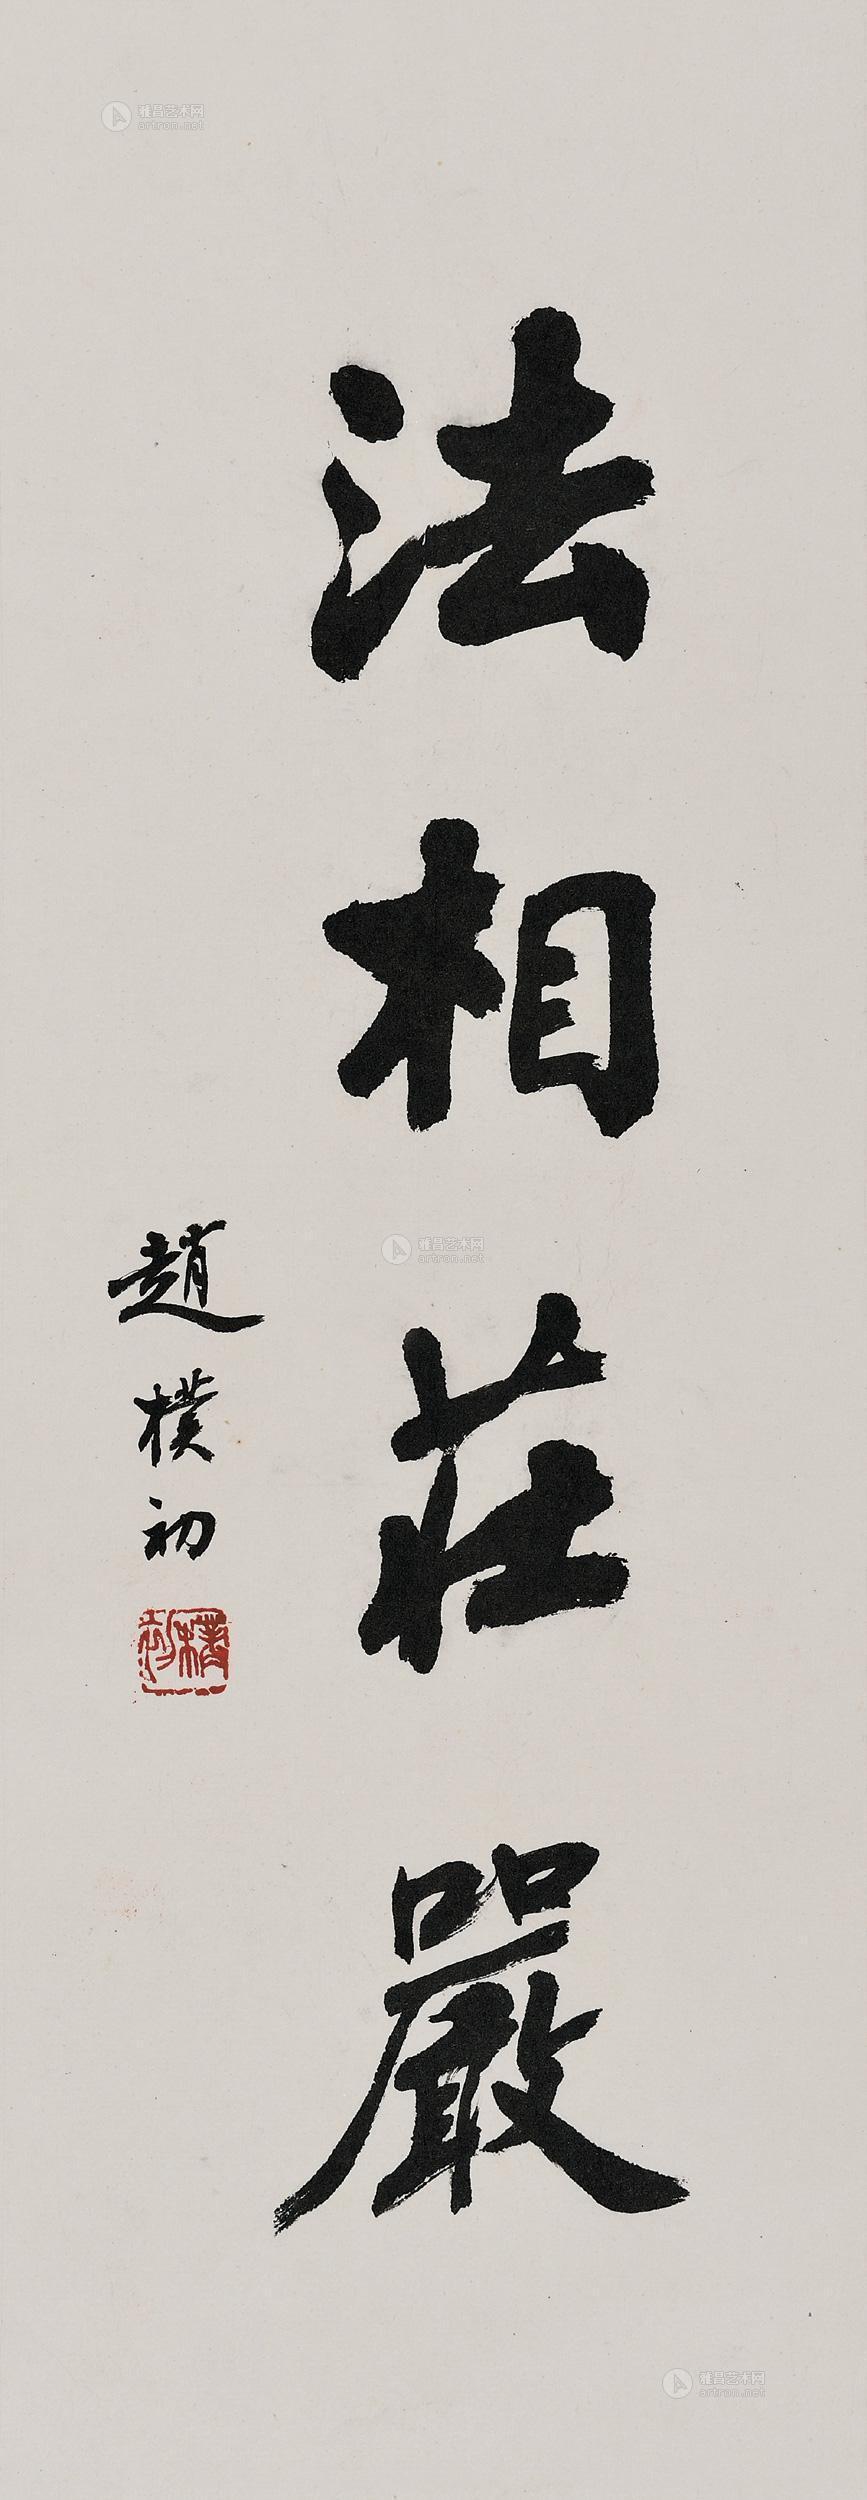 法相莊嚴
趙樸初
雅昌艺术网
artron.net
雅昌艺术网
artron.net
雅昌艺术网
artron.net